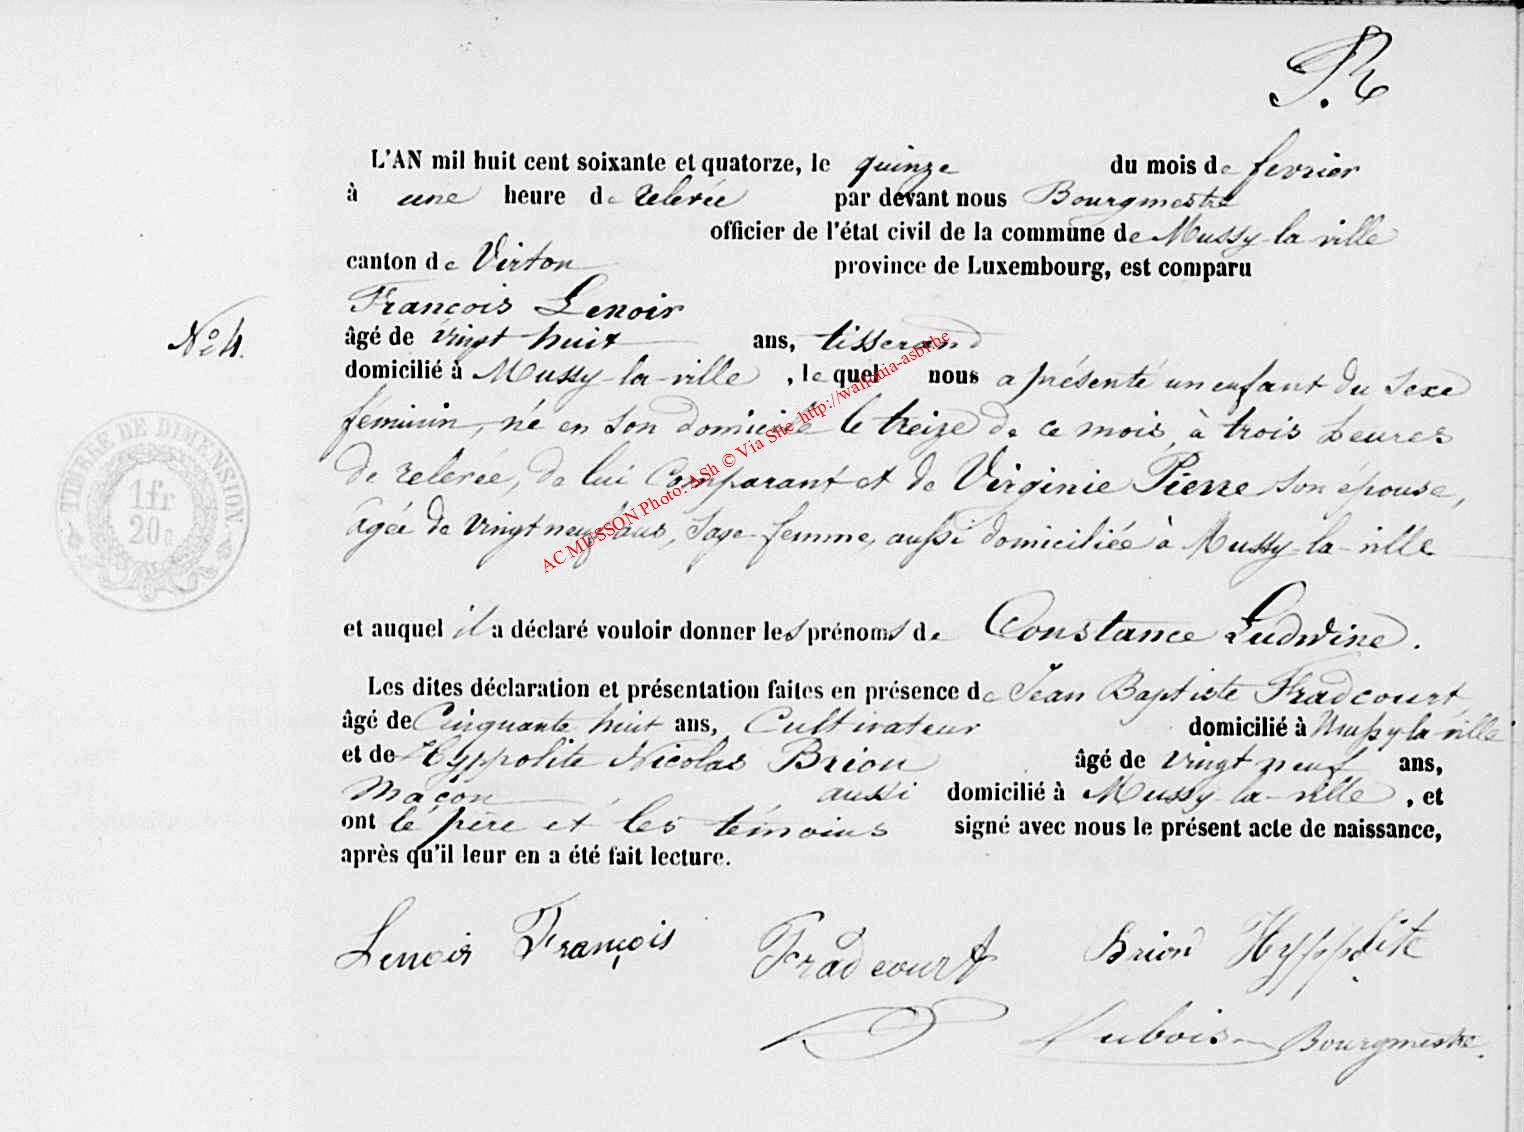 L'AN mil huit cent soixante et quatorze, le quinze du mois de fevrier
à une heure de relevée par devant nous Bourgmestre
officier de l'état civil de la commune de Mussy-la-ville
canton de Virton province de Luxembourg, est comparu
François Lenoir
âgé de vingt huit ans, tisserand
domicilié à Mussy-la-ville, le quel nous a présenté un enfant du sexe
féminin, né en son domicile le treize de ce mois, à trois heures
de relevée, de lui Comparant et de Virginie Pierre son épouse,
âgée de vingt neuf ans, Sage-femme, aussi domiciliée à Mussy-la-ville
AC MUSSON Photo: ASh © Via Site http://wallonia-asbl.be
No 4.
TIMBRE DE DIMENSION
1fr
20c
et auquel il a déclaré vouloir donner les prénoms de Constance Ludwine.
Les dites déclaration et présentation faites en présence de Jean Baptiste Fradcourt,
âgé de Cinquante huit ans, Cultivateur domicilié à Mussy-la-ville
et de Hyppolite Nicolas Brion âgé de vingt neuf ans,
Maçon, aussi domicilié à Mussy-la-ville, et
ont le père et les témoins signé avec nous le présent acte de naissance,
après qu'il leur en a été fait lecture.
Lenoir François Fradcourt Brion Hyppolite
Dubois Bourgmestre.